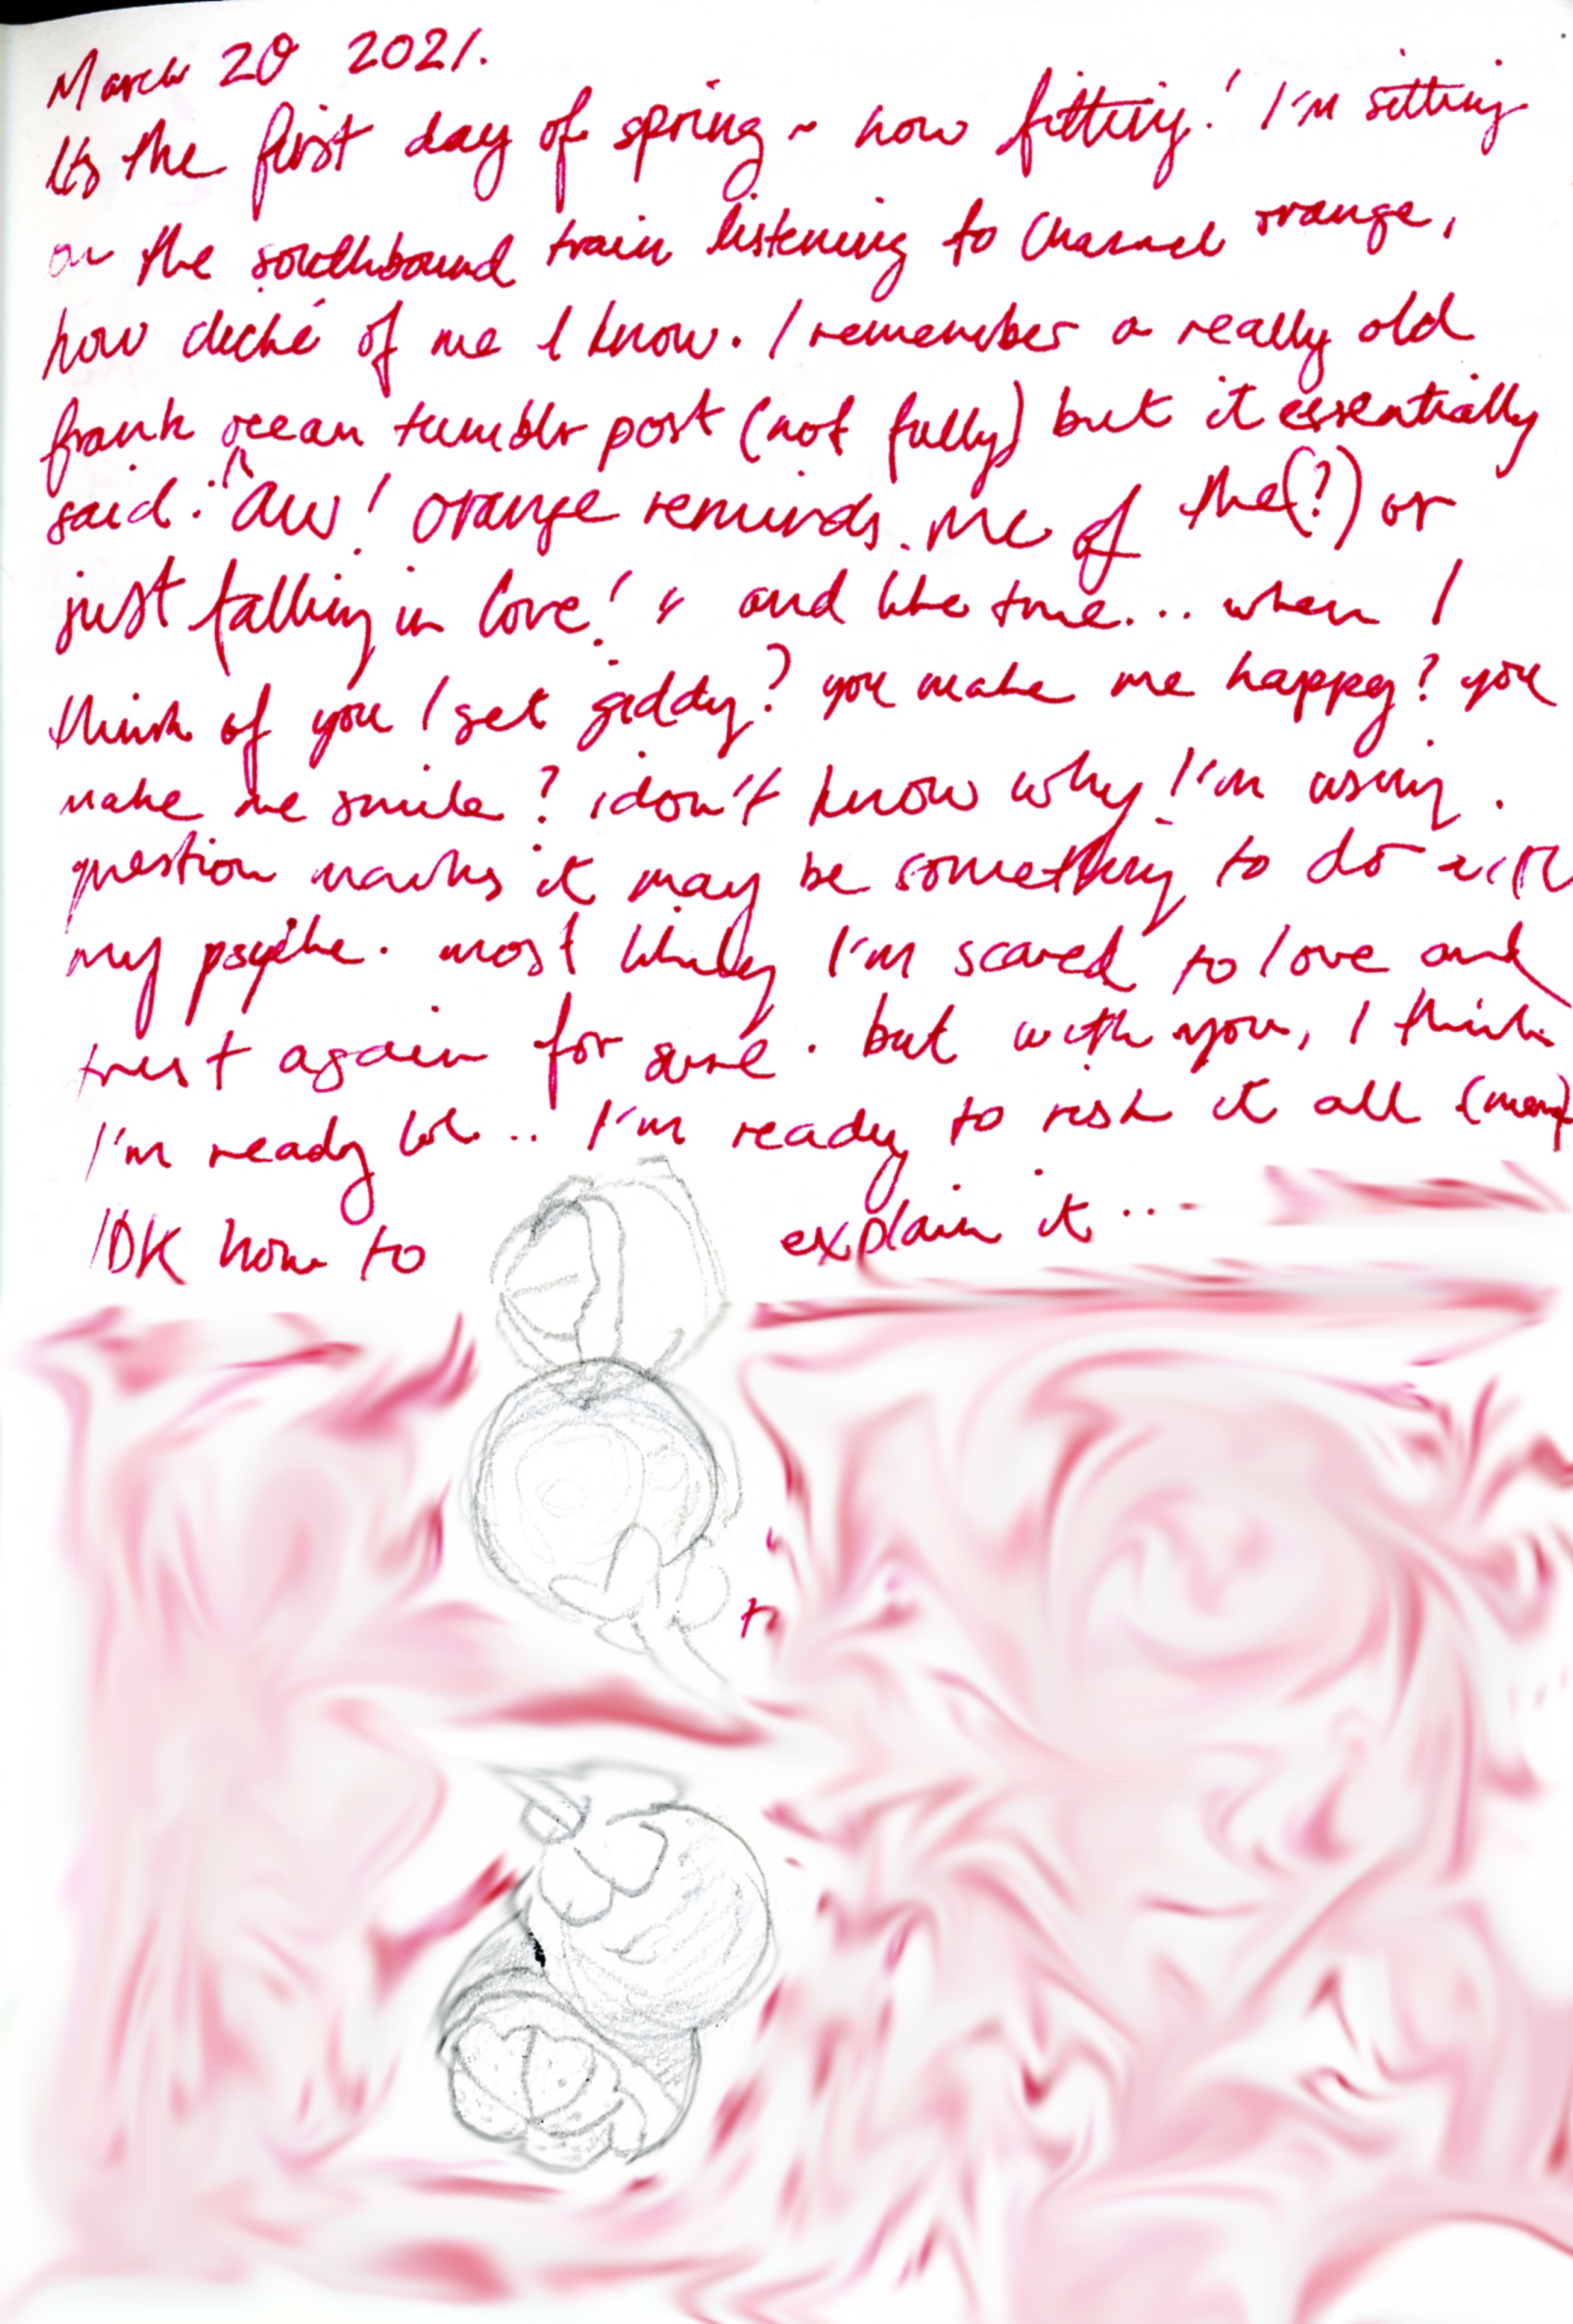 March 20 2021.
Its the first day of spring ~ how fitting! I'm sitting
on the southbound train listening to Channel orange,
how cliché of me I know. I remember a really old
frank ocean tumblr post (not fully) but it essentially
said: "aw! orange reminds me of the(?) or
just falling in love!" and like true... when I
think of you I get giddy? you make me happy? you
make me smile? i don't know why I'm using
question marks it may be something to do with
my psyche. most likely I'm scared to love and
trust again for sure. but with you, I think
I'm ready lol... I'm ready to risk it all
IDK how to explain it...